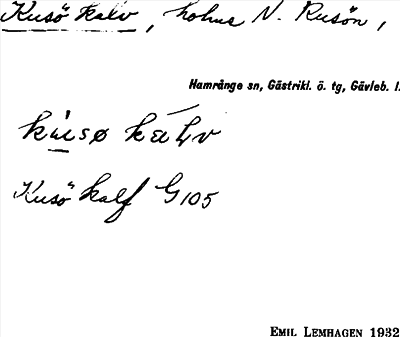 Kusö kalv, holme N. Rusön,
Hamrånge sn, Gästrikl. ö. tg, Gävleb. l.
Kusö kalf G105
EMIL LEMHAGEN 1932